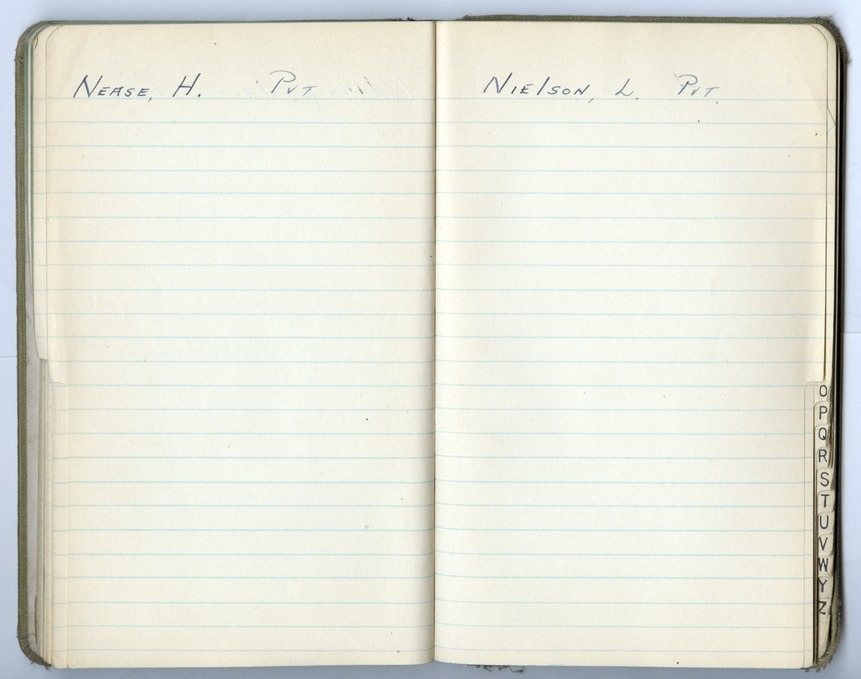 NEASE, H. PVT
NIElSON, L. PVT.
O
P
Q
R
S
T
U
V
W
Y
Z